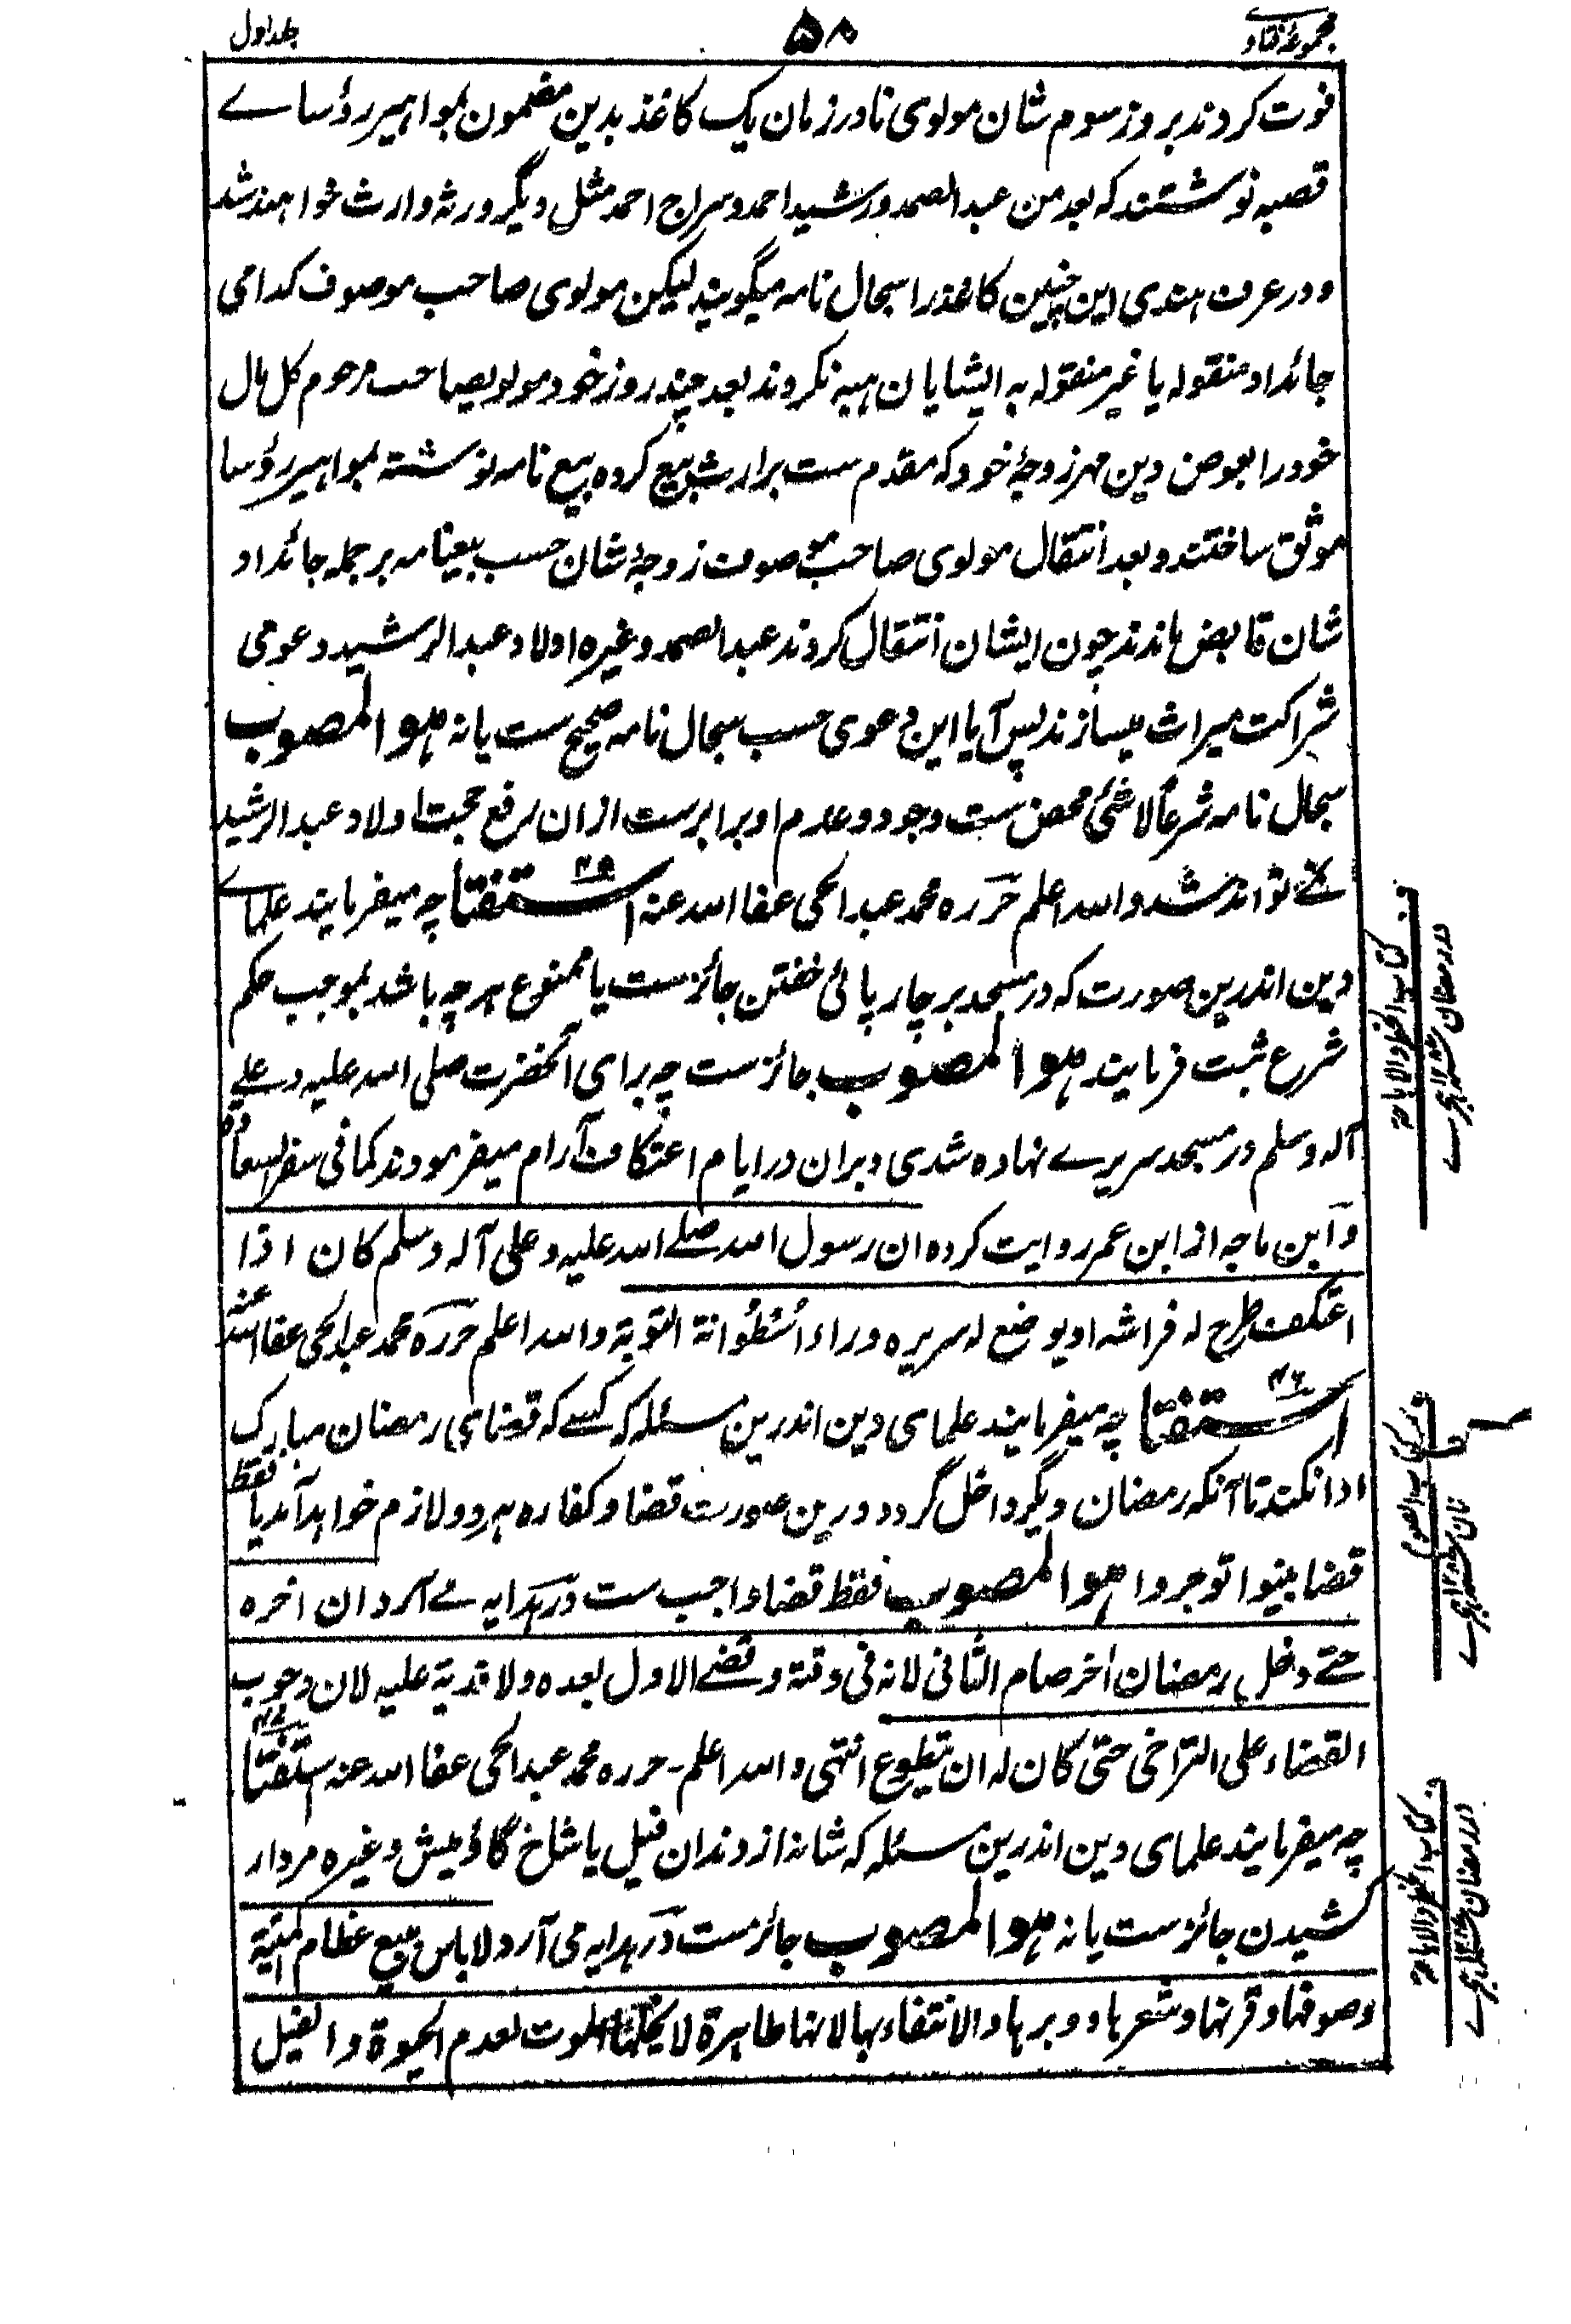 مجموعۂ فتاوے
۵۸
جلد اول
فوت کردند بروز سوم شان مولوی نادر زمان یک کاغذ بدین مضمون بمواہیر رؤساے
قصبہ نوشتند کہ بعد من عبد الصمد و رشید احمد و سراج احمد مثل دیگر ورثہ وارث خواہند شد
و در عرف ہندی این چنین کاغذ را سجال نامہ میگویند لیکن مولوی صاحب موصوف کدامی
جائداد منقولہ یا غیر منقولہ بہ ایشایان ہبہ نکردند بعد چند روز خود مولویصاحب مرحوم کل مال
خود را بعوض دین مہر زوجۂ خود کہ مقدم ست بر ارث بیع کردہ بیع نامہ نوشتہ بمواہیر رؤسا
موثق ساختند و بعد انتقال مولوی صاحب موصوف زوجۂ شان حسب بیعنامہ بر جملہ جائداد
شان قابض ماندند چون ایشان انتقال کردند عبد الصمد وغیرہ اولاد عبد الرشید دعوی
شراکت میراث میسازند پس آیا این دعوی حسب سجال نامہ صحیح ست یا نہ ہو المصوب
سجال نامہ شرعاً لاشئ محض ست وجود و عدم او برابر ست از ان رفع حجت اولاد عبد الرشید
نمے تواند شد و اللہ اعلم حررہ محمد عبد الحی عفا اللہ عنہ استفتا ۴۵ چہ میفرمایند علماے
دین اندرین صورت کہ در مسجد بر چارپائی خفتن جائز ست یا ممنوع ہر چہ باشد بموجب حکم
شرع ثبت فرمایند ہو المصوب جائز ست چہ برای آنحضرت صلی اللہ علیہ و علی
آلہ وسلم در مسجد سریرے نہادہ شدی و بران در ایام اعتکاف آرام میفرمودند کما فی سفر السعادۃ
و ابن ماجہ از ابن عمر روایت کردہ ان رسول اللہ صلے اللہ علیہ و علی آلہ وسلم کان اذا
اعتکف طرح لہ فراشہ او یوضع لہ سریرہ وراء اُسْطُوَانۃ التوبۃ واللہ اعلم حررہ محمد عبد الحی عفا اللہ عنہ
استفتا ۴۶ چہ میفرمایند علمای دین اندرین مسئلہ کہ کسے کہ قضای رمضان مبارک
ادا نکند تا آنکہ رمضان دیگر داخل گردد درین صورت قضا و کفارہ ہر دو لازم خواہد آمد یا فقط
قضا بینوا توجروا ہو المصوب فقط قضا واجب ست در ہدایہ مے آرد و ان اخرہ
حتے دخل رمضان اٰخر صام الثانی لانہ فی وقتہ و قضے الاول بعدہ ولا فدیۃ علیہ لان وجوب
القضاء علی التراخی حتی کان لہ ان یتطوع انتہی و اللہ اعلم۔ حررہ محمد عبد الحی عفا اللہ عنہ استفتا ۴۷
چہ میفرمایند علمای دین اندرین مسئلہ کہ شانہ از دندان فیل یا شاخ گاؤمیش وغیرہ مردار
کشیدن جائز ست یا نہ ہو المصوب جائز ست در ہدایہ می آرد ولا باس ببیع عظام المیتۃ
و صوفہا و قرنہا و شعرہا و وبرہا والانتفاء بہا لانہا طاہرۃ لا یحلہا الموت لعدم الحیوۃ و الفیل
کتاب الحظر والاباحۃ
در رمضان
کتاب الصوم
کتاب الحظر والاباحۃ
در رمضان